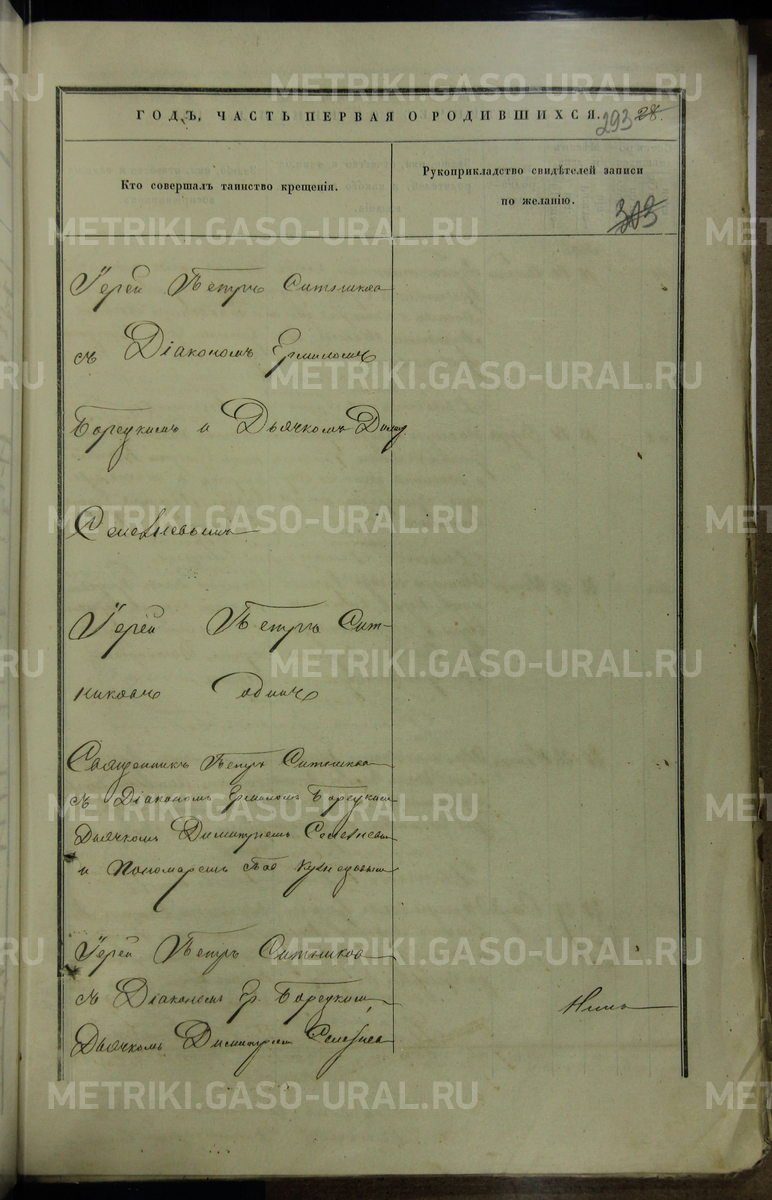 METRIKI.GASO-URAL.RU
ГОДЪ, ЧАСТЬ ПЕРВАЯ О РОДИВШИХСЯ. 293 28.
Кто совершалъ таинство крещенія.
Рукоприкладство свидѣтелей записи
по желанію.
303
Іерей Петръ Ситников
съ Діакономъ Ермиломъ
Борецкимъ и Дьячкомъ
Селе
Іерей Петръ Сит-
никовъ одинъ
Священникъ Петръ Ситников
съ Діакономъ Ермиломъ Борецким
Дьячкомъ Димитріемъ
и Пономаремъ
Іерей Петръ Ситников
съ Діакономъ Ер. Борецким
Дьячкомъ Димитріем